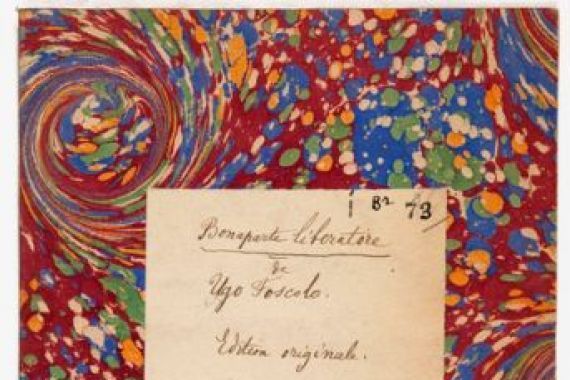 Br 73
Bonaparte liberatore
da
Ugo Foscolo.
Edition originale.